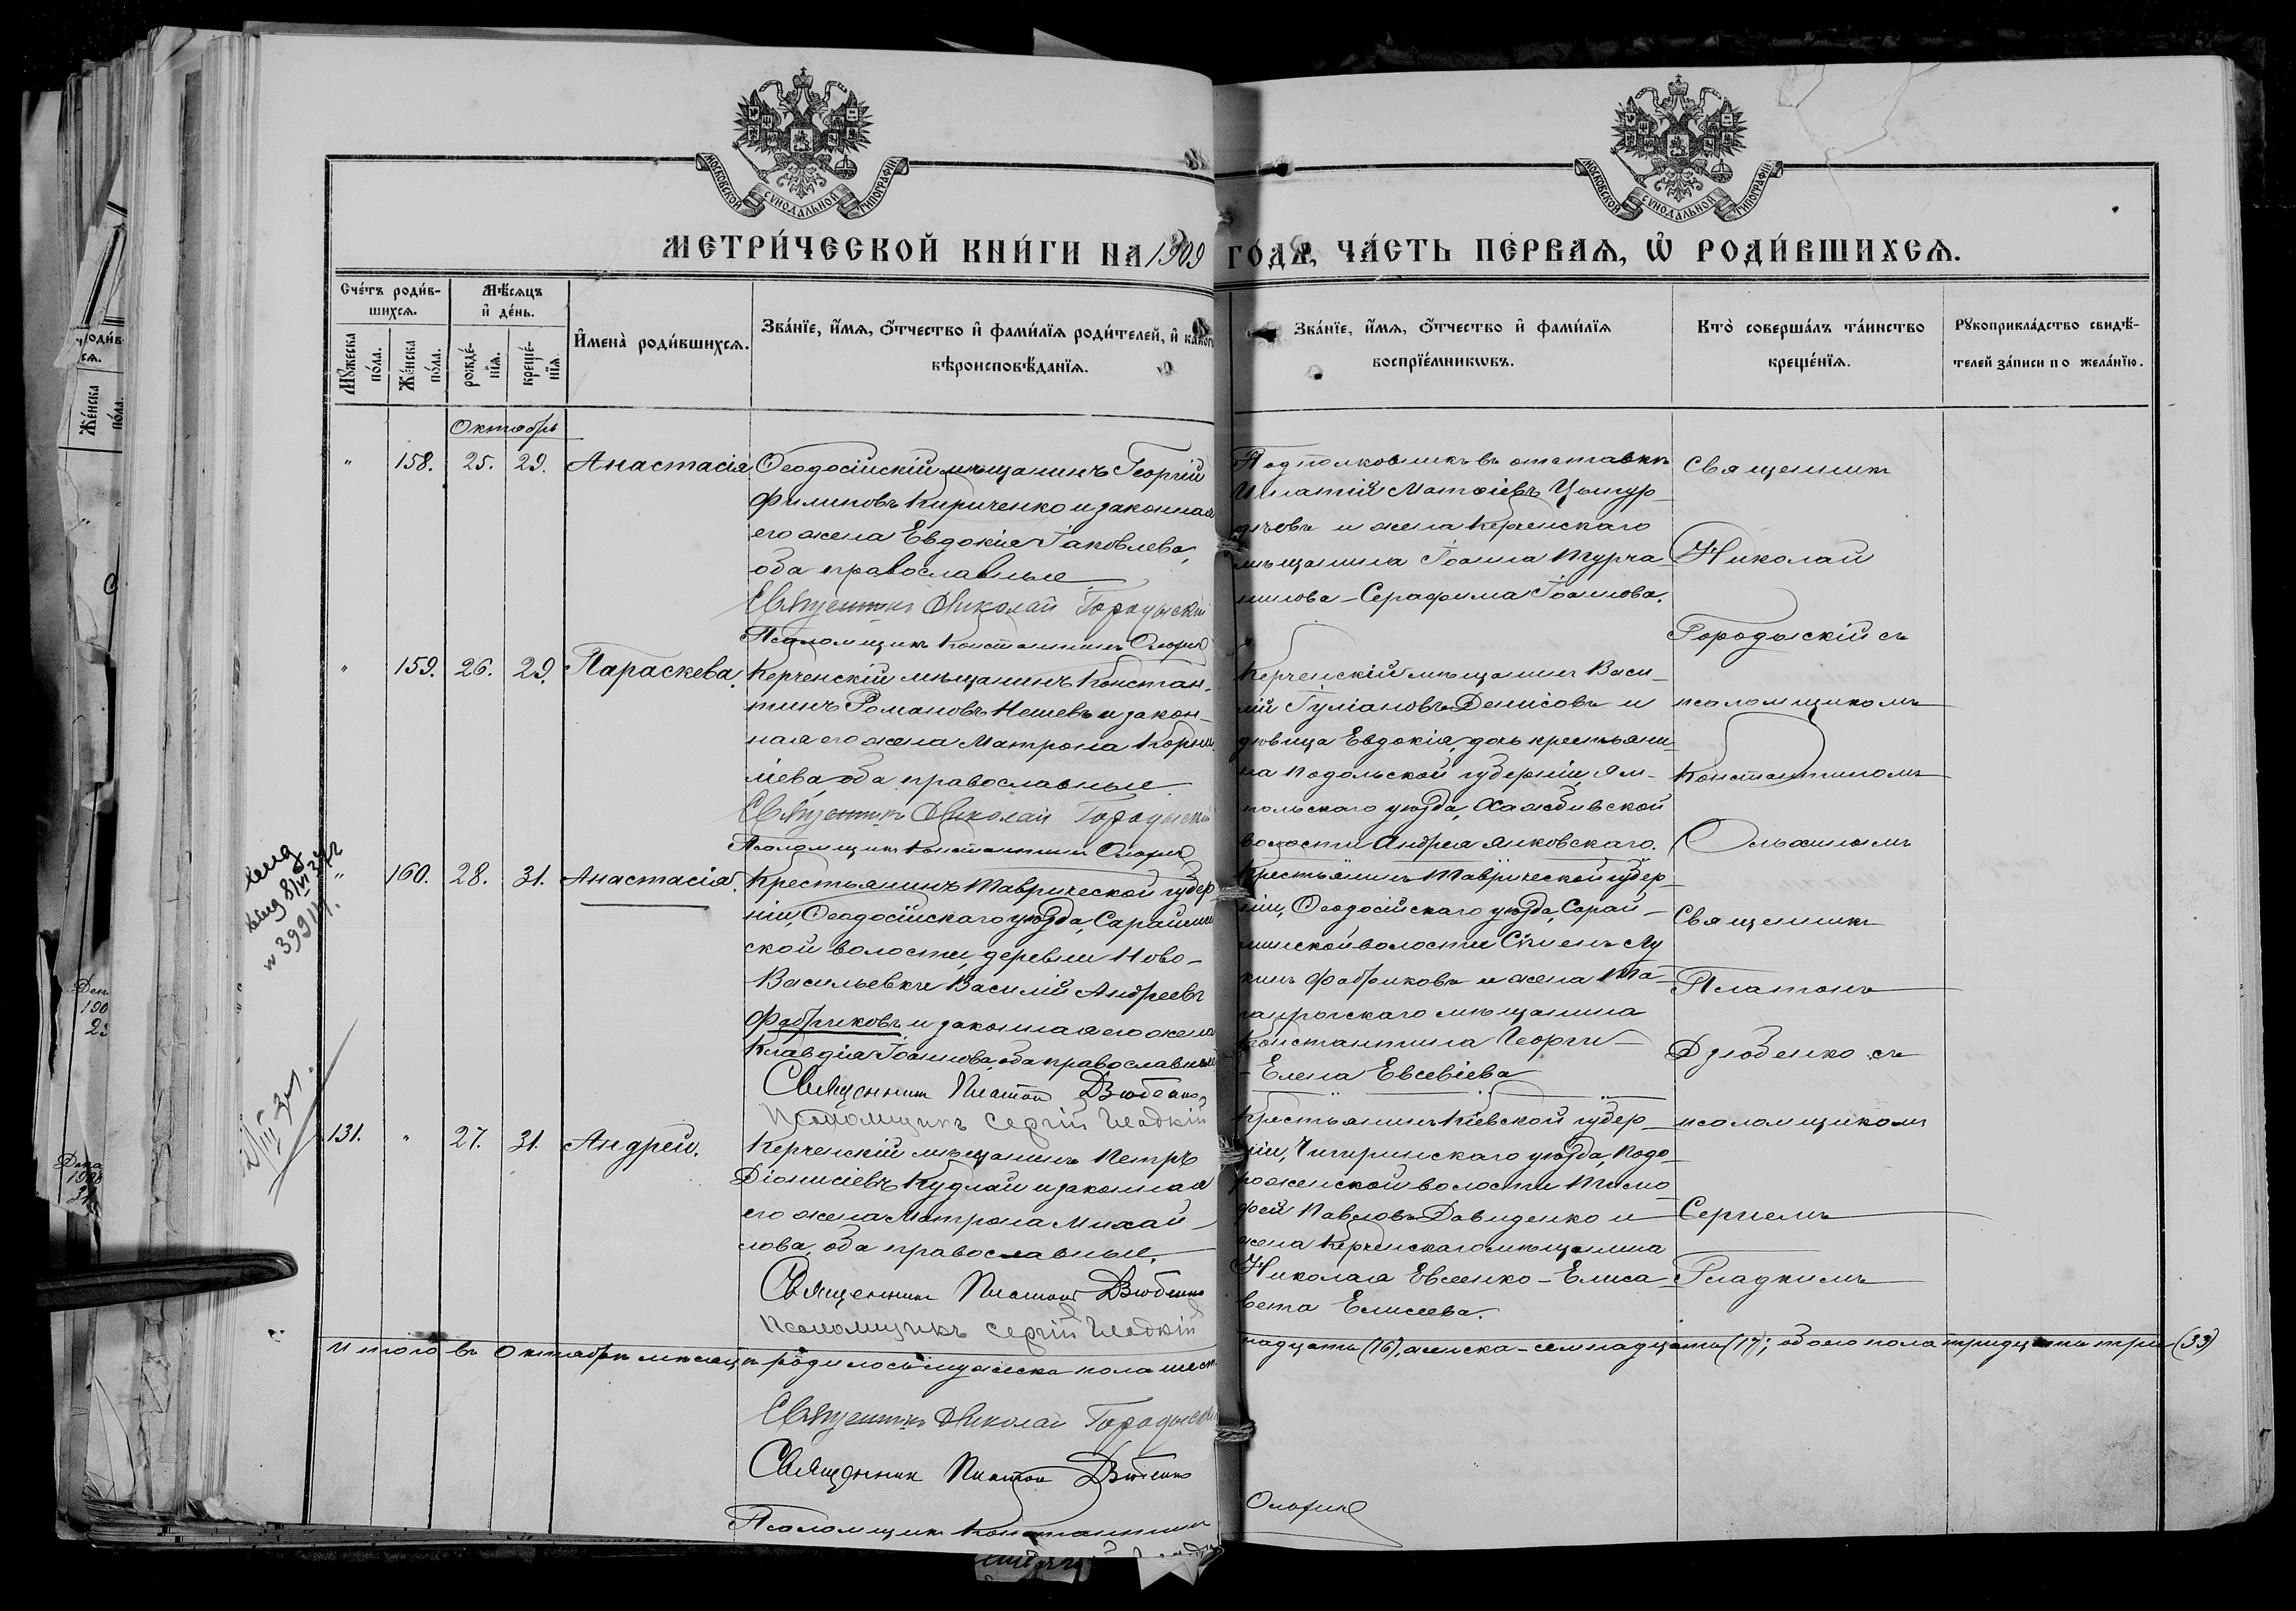 МОСКОВСКОЙ СѴНОДАЛЬНОЙ ТИПОГРАФІИ
МОСКОВСКОЙ СѴНОДАЛЬНОЙ ТИПОГРАФІИ
МЕТРИ́ЧЕСКОЙ КНИ́ГИ НА 1909 ГО́ДЪ, ЧА́СТЬ ПЕ́РВАѦ, Ѡ҆ РОДИ́ВШИХСѦ.
Сче́тъ роди́в-
шихсѧ.
Мѣ́сѧцъ
и҆ де́нь.
И҆мена̀ роди́вшихсѧ.
Зва́нїе, и҆́мѧ, ѻ҆́тчество и҆ фами́лїѧ роди́телей, и҆ како́гѡ
вѣроисповѣ́данїѧ.
Зва́нїе, и҆́мѧ, ѻ҆́тчество и҆ фами́лїѧ
воспрїе́мникѡвъ.
Кто̀ соверша́лъ та́инство
креще́нїѧ.
Рꙋкоприкла́дство свидѣ́-
телей за́писи по жела́нїю.
Мꙋ́жеска
по́ла.
Же́нска
по́ла.
рожде́-
нїѧ.
креще́-
нїѧ.
Октябрь
" 158. 25. 29. Анастасія
Ѳеодосійскій мѣщанинъ Георгій
Филиповъ Кириченко и законная
его жена Евдокія Іаковлева,
оба православные
Священникъ Николай Городыскій
Псаломщикъ Константинъ
Подполковникъ въ отставкѣ
Матѳіевъ
и жена Керченскаго
мѣщанина Іоанна Турча-
нинова - Серафима Іоаннова.
Священникъ
Николай
Городыскій съ
псаломщикомъ
Константиномъ
" 159. 26. 29. Параскева.
Керченскій мѣщанинъ Констан-
тинъ Романовъ Нешевъ и закон-
ная его жена Матрона Корни-
ліева оба православные
Священникъ Николай Городыскій
Псаломщикъ Константинъ
Керченскій мѣщанинъ Васи-
лій Гуліановъ Денисовъ и
дѣвица Евдокія, дочь крестьяни-
на Подольской губерніи, Ям-
польскаго уѣзда,
волости Андрея Янковскаго.
" 160. 28. 31. Анастасія.
Крестьянинъ Таврической губер-
ніи, Ѳеодосійскаго уѣзда, Сараймин-
ской волости, деревни Ново-
Васильевки Василій Андреевъ
Фабриковъ и законная его жена
Клавдія Іоаннова, оба православные
Священникъ Платонъ Дзюбенко
Псаломщикъ Сергій Гладкій
Крестьянинъ Таврической губер-
ніи, Ѳеодосійскаго уѣзда, Сарай-
минской волости Лу
кинъ Фабриковъ и жена Та-
ганрогскаго мѣщанина
Константина Георги-
- Елена Евсевіева
Священникъ
Платонъ
Дзюбенко съ
псаломщикомъ
Сергіемъ
Гладкимъ
131. " 27. 31. Андрей.
Керченскій мѣщанинъ Петръ
Діонисіевъ Кудлай и законная
его жена Матрона Михай-
лова, оба православные.
Священникъ Платонъ Дзюбенко
Псаломщикъ Сергій Гладкій
Крестьянинъ Кіевской губер-
ніи, Чигиринскаго уѣзда, Подо-
рожненской волости Тимо-
ѳей Павловъ Давиденко и
жена Керченскаго мѣщанина
Николая Евсѣенко - Елиса-
вета Елисеева.
Итого въ Октябрѣ мѣсяцѣ родилось мужеска пола шест-
надцать (16), женска - семнадцать (17); обоего пола тридцать три (33)
Священникъ Николай Городыскій
Священникъ Платонъ Дзюбенко
Псаломщикъ Константинъ